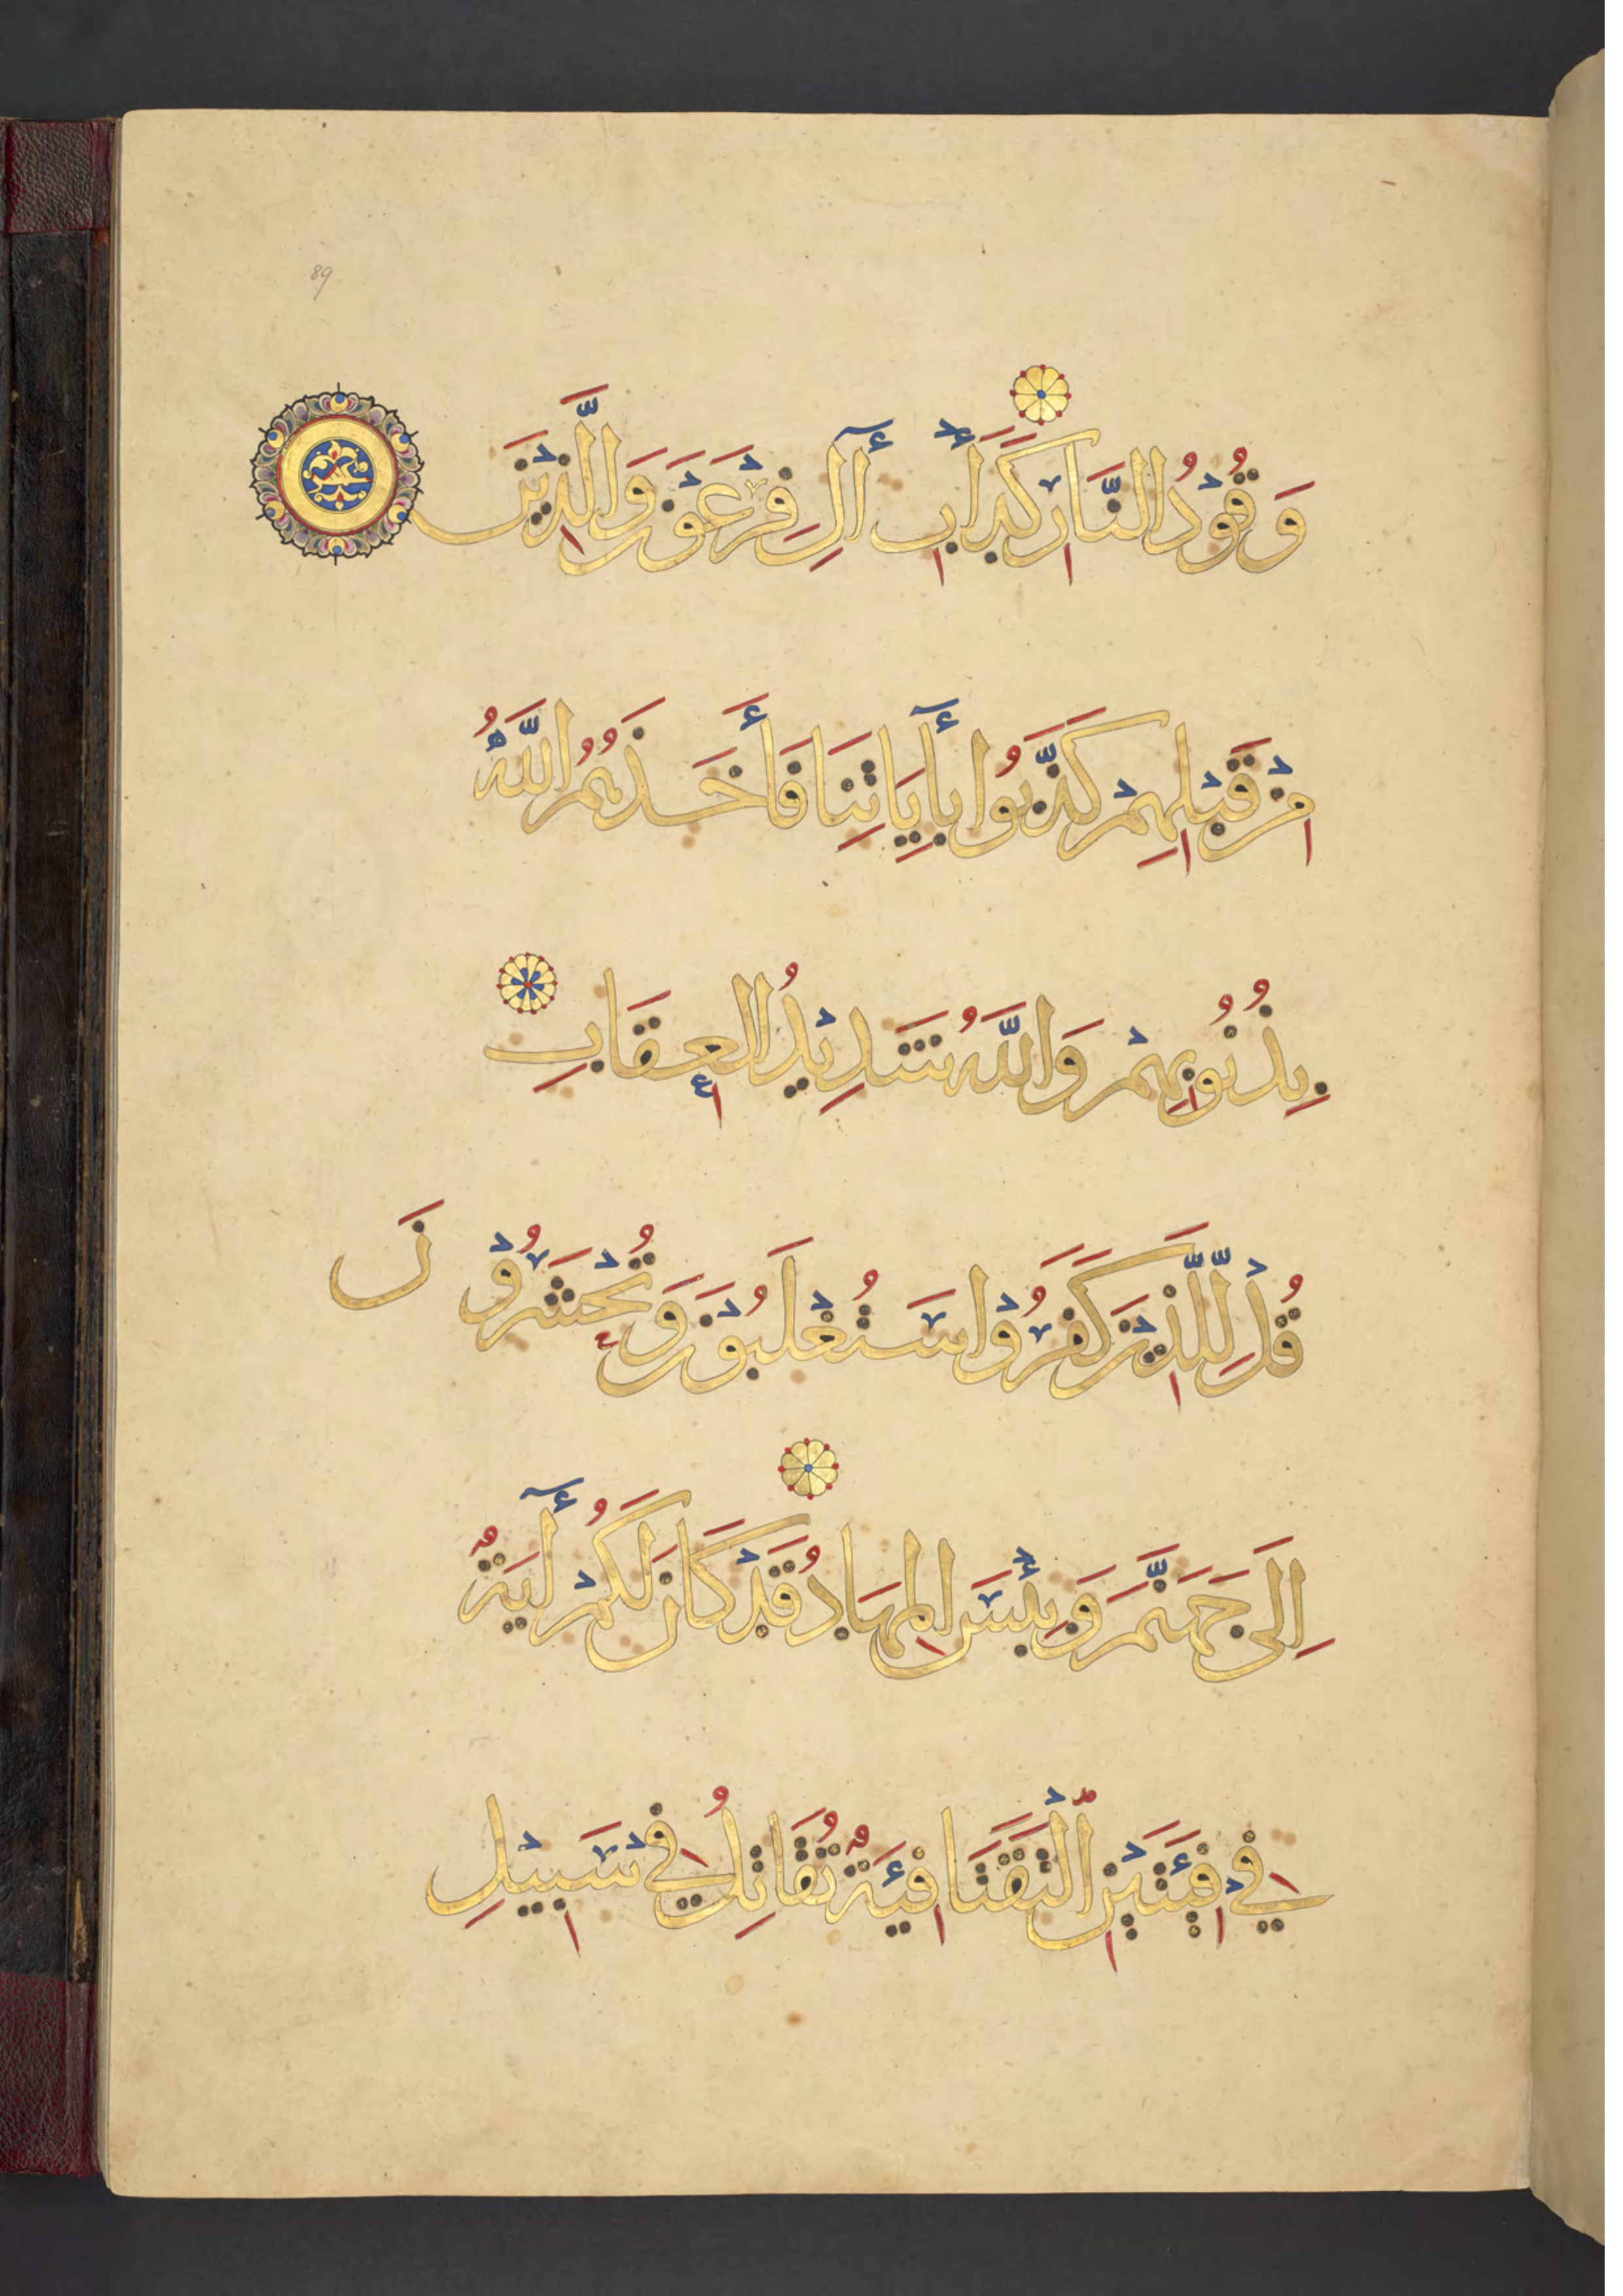 89
وَقُوْدُ النَّارِ كَدَأْبِ آلِ فِرْعَوْنَ وَالَّذِيْنَ
مِنْ قَبْلِهِمْ كَذَّبُوا بِأٓيَاتِنَا فَأَخَذَهُمُ اللَّهُ
بِذُنُوبِهِمْ وَاللَّهُ شَدِيْدُ الْعِقَابِ
قُلْ لِلَّذِيْنَ كَفَرُوْا سَتُغْلَبُوْنَ وَتُحْشَرُوْنَ
اِلَى جَهَنَّمَ وَبِئْسَ المِهَادُ قَدْ كَانَ لَكُمْ أٓيَةٌ
فِيْ فِئَتَيْنِ الْتَقَتَا فِئَةٌ تُقَاتِلُ فِيْ سَبِيْلِ